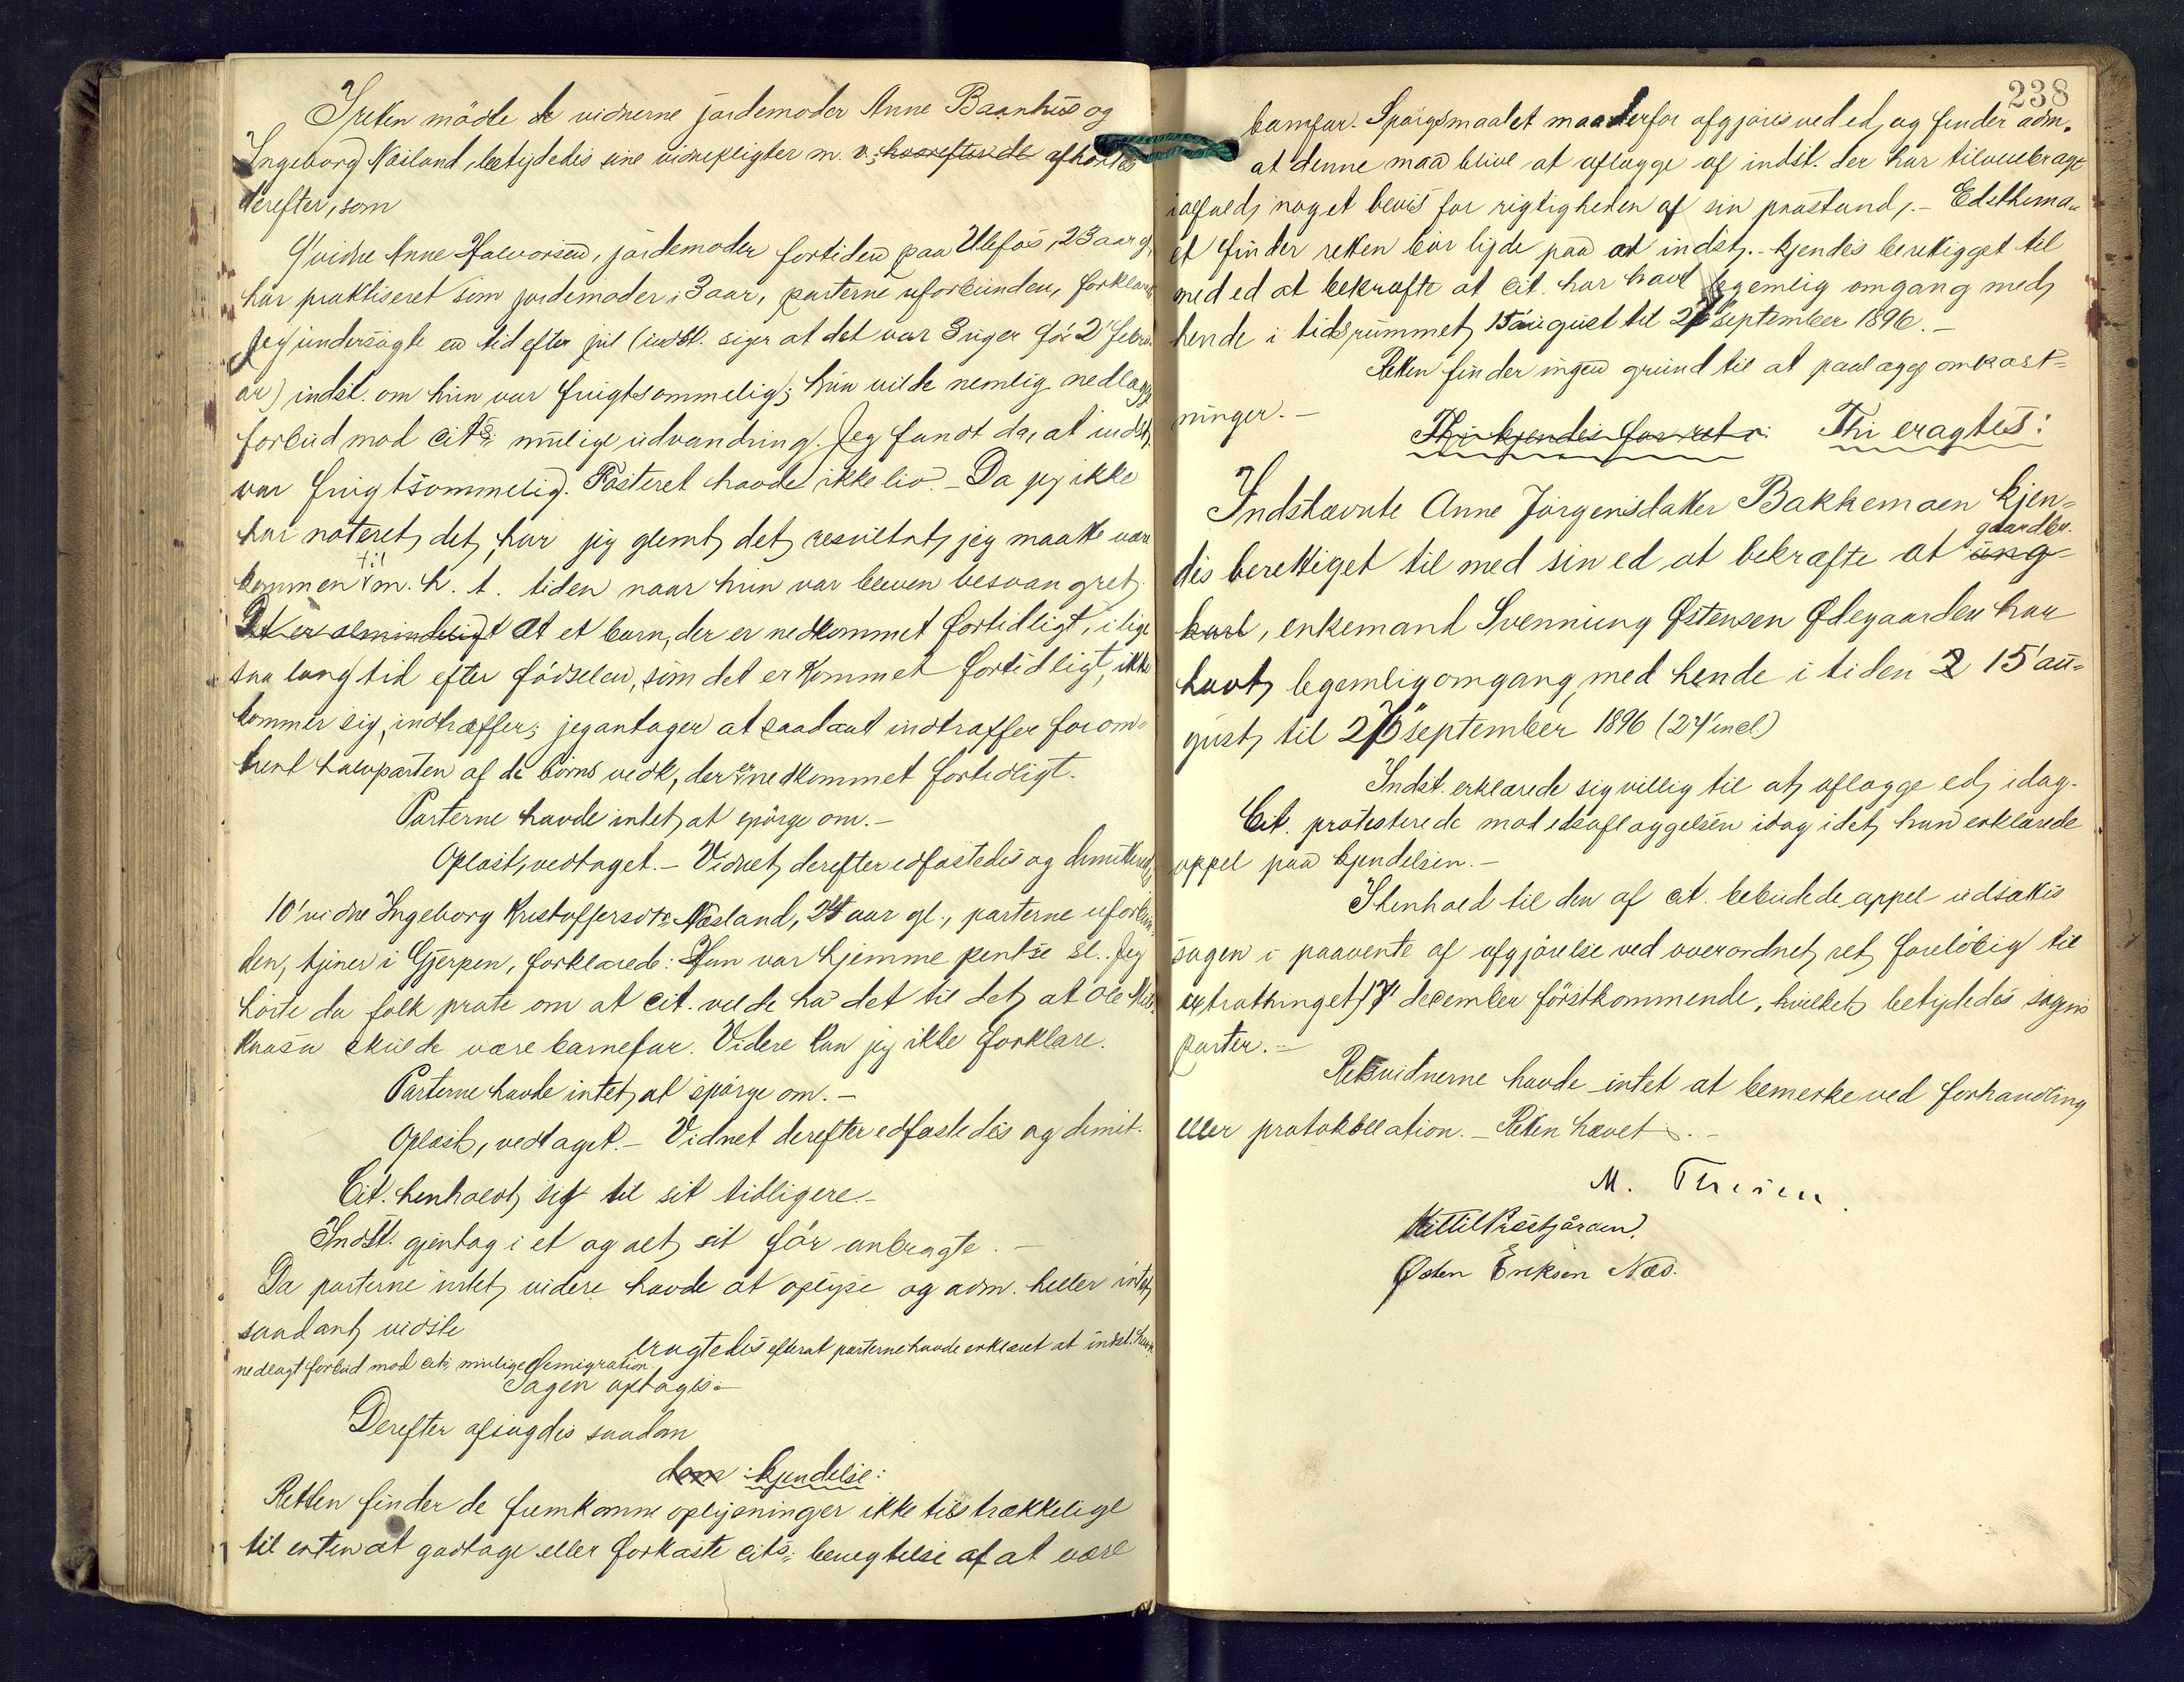 I retten mødte de vidnerne jordemoder Anne Baanhus og
Ingeborg Næsland, betydedes sine vidnepligter m. v., hvorefter de afhørtes
derefter, som
9' vidne Anne Halvorsen, jordemoder fortiden paa Ulefos, 23 aar gl,
har praktiseret som jordemoder i 3 aar, parterne uforbunden, forklared
Jeg undersøgte en tid efter jul (indst. siger at det var 3 uger før 2' febru
ar) indst. om hun var frugtsommelig; hun vilde nemlig nedlægge
forbud mod cits: mulige udvandring. Jeg fandt da, at indst.
var frugtsommelig. Fosteret havde ikke liv. – Da jeg ikke
har noteret det, har jeg glemt det resultat, jeg maatte være
kommen til m. h. t. tiden naar hun var bleven besvangret.
Det er almindeligt At et barn, der er nedkommet fortidligt, i lige
saa lang tid efter fødselen, som det er kommet fortidligt, ikke
kommer sig, indtræffer; jeg antager at saadant indtræffer for om=
trent halvparten af de børns vedk, der er nedkommet fortidligt.
Parterne havde intet at spørge om. –
Oplæst, vedtaget. – Vidnet derefter edfæstedes og dimitteredes
10' vidne Ingeborg Kristoffersdtr. Næsland, 24 aar gl., parterne uforbun
den, tjener i Gjerpen, forklarede: Hun var hjemme pentse sl.. Jeg
hørte da folk prate om at cit. vilde ha det til det, at Ole
skulde være barnefar. Videre kan jeg ikke forklare.
Parterne havde intet at spørge om. –
Oplæst, vedtaget. – Vidnet derefter edfæstedes og dimit.
Cit. henholdt sig til sit tidligere. –
Indst. gjentog i et og alt sit før anbragte. –
Da parterne intet videre havde at oplyse og adm. heller intet
saadant vidste
eragtedes efterat parterne havde erklæret at indst. havde
nedlagt forbud mod cits mulige emigration
Sagen optages. –
Derefter afsagdes saadan
dom: kjendelse:
Retten finder de fremkomne oplysninger ikke tilstrækkelige
til enten at godtage eller forkaste cits: benegtelse af at være
238
barnfar. Spørgsmaalet maa derfor afgjøres ved ed, og finder adm.
at denne maa blive at aflægge af indst. der har tilveiebragt
ialfald noget bevis for rigtigheden af sin paastand. – Edsthema=
et finder retten bør lyde paa at indst. – kjendes berettiget til
med ed at bekræfte at cit. har havt legemlig omgang med
hende i tidsrummet 15 august til 26' september 1896. –
Retten finder ingen grund til at paalægge omkost=
ninger. –
Thi kjendes for ret: Thi eragtes:
Indstævnte Anne Jørgensdatter Bakkemoen kjen=
gaardbr.
des berettiget til med sin ed at bekræfte at ung
karl, enkemand Svennung Østensen Ødegaarden har
havt legemlig omgang med hende i tiden 2 15' au=
gust til 26' september 1896 (24' incl)
Indst. erklærede sig villig til at aflægge ed idag.
Cit. protesterede mod edsaflæggelsen idag idet han erklærede
appel paa kjendelsen. –
I henhold til den af cit. bebudede appel udsættes
sagen i paavente af afgjørelse ved overordnet ret foreløbig til
extratthinget 17' december førstkommende, hvilket betydedes sagens
parter. –
Retsvidnerne havde intet at bemerke ved forhandling
eller protokollation. – Retten hævet. –
M.
Kittil Prestjården.
Østen Eriksen Næs.